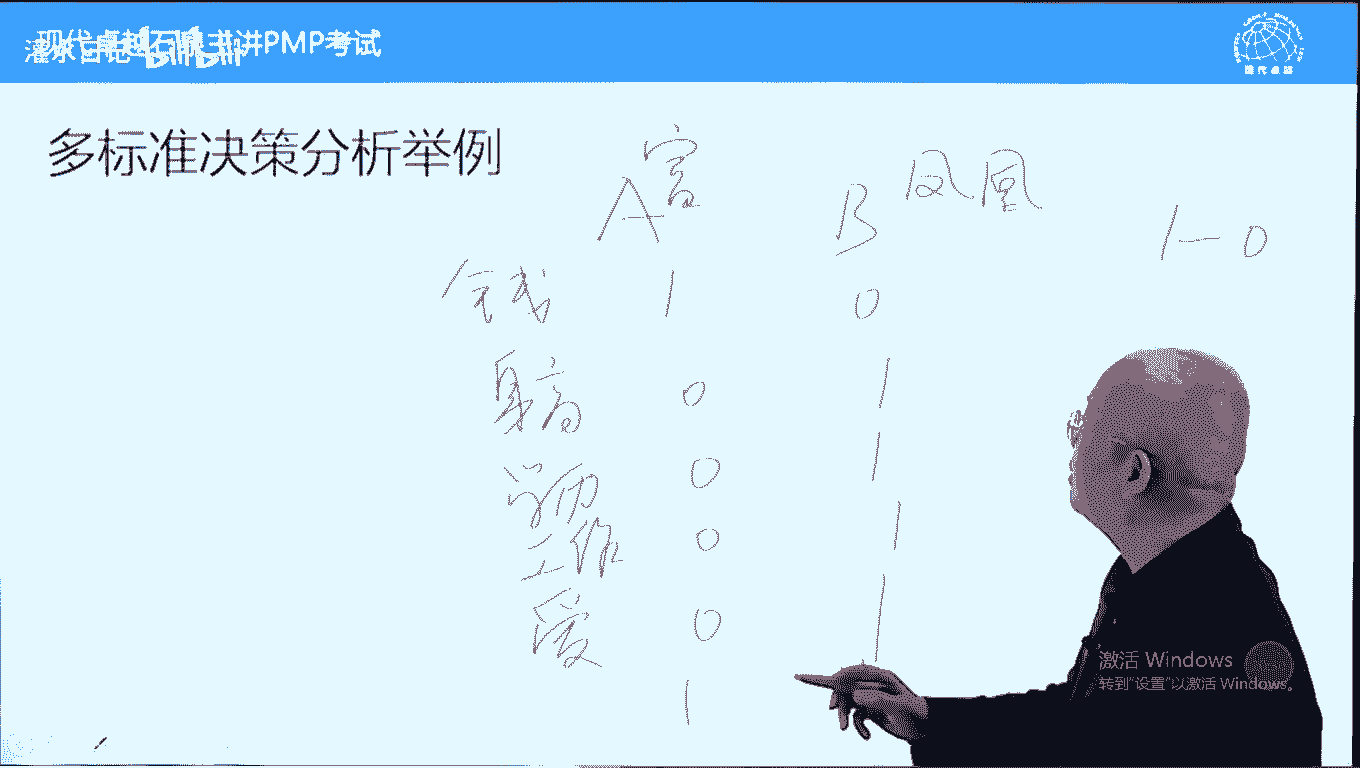 现代卓越石泉主讲PMP考试
灌水日记 bilibili
现代卓越
多标准决策分析举例
A富 B凤凰 1-0
金戈 1 0
身高 0 1
学历 0 1
工作 0 1
爱 0 1
1
激活 Windows
转到“设置”以激活 Windows。